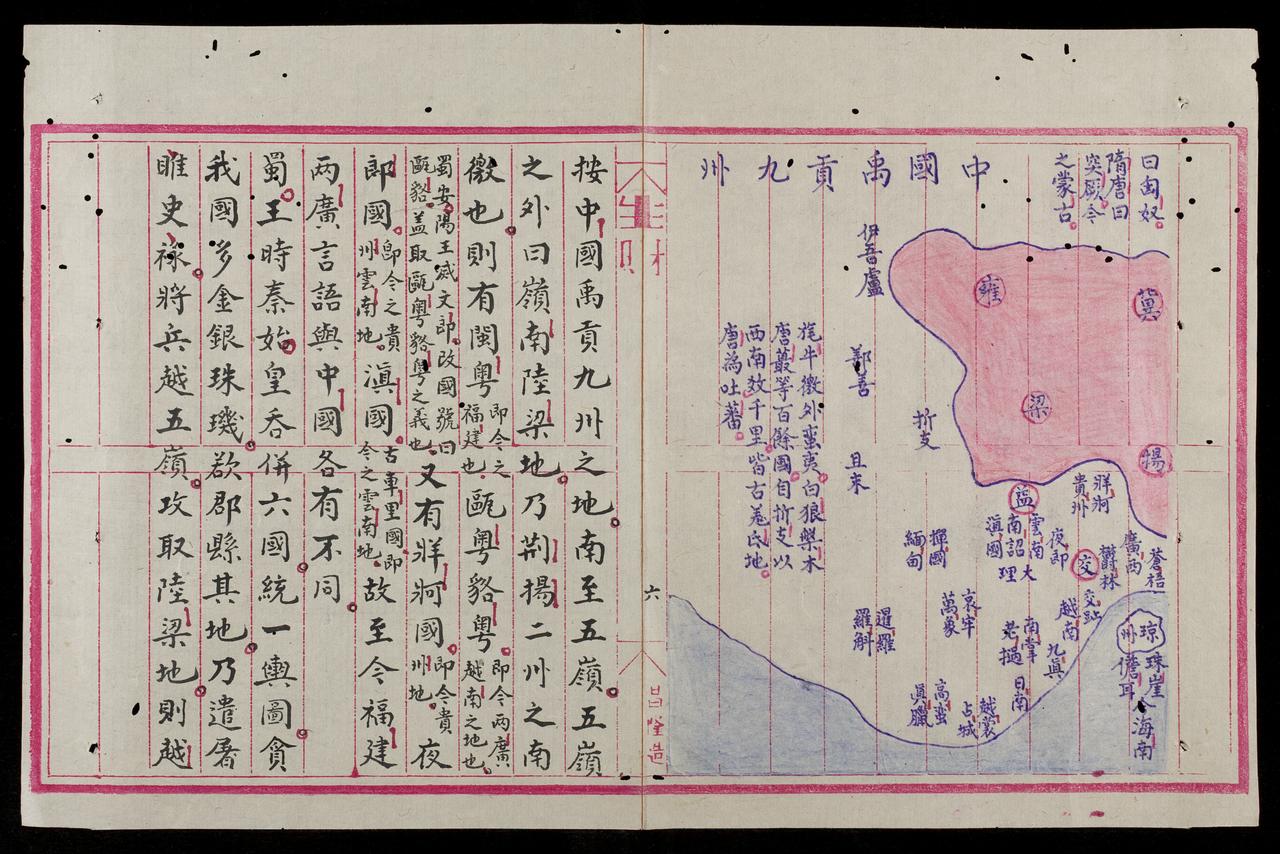 曰匈奴
隋唐曰
突厥今
之蒙古
中國禹貢九州
冀
雍
梁
揚
伊吾盧
鄯善
且末
析支
旄牛徼外蛮夷白狼槃木
唐蕞等百餘國自析支以
西南数千里皆古羗氐地
唐為吐蕃
牂牁
貴州
益
雲南大
南詔理
滇國
夜郎
交
蒼梧
廣西
欝林
交趾
越南
九眞
日南
南掌
老撾
越裳
占城
撣國
緬甸
哀牢
萬象
暹羅
羅斛
高蛮
眞臘
琼州
珠崖
儋耳
今海南
六
昌隆造
按中國禹貢九州之地南至五嶺五嶺
之外曰嶺南陸梁地乃荆揚二州之南
徼也則有閩粤即今之福建也甌粤貉粤即今兩廣越南之地也
蜀安陽王滅文郎改國號曰甌貉盖取甌粤貉粤之義也又有牂牁國即今貴州地夜
郎國即今之貴州雲南地滇國古車里國即今之雲南地故至今福建
两廣言語與中國各有不同
蜀王時秦始皇吞併六國統一輿圖貪
我國多金銀珠璣欲郡縣其地乃遣屠
睢史祿將兵越五嶺攻取陸梁地則越